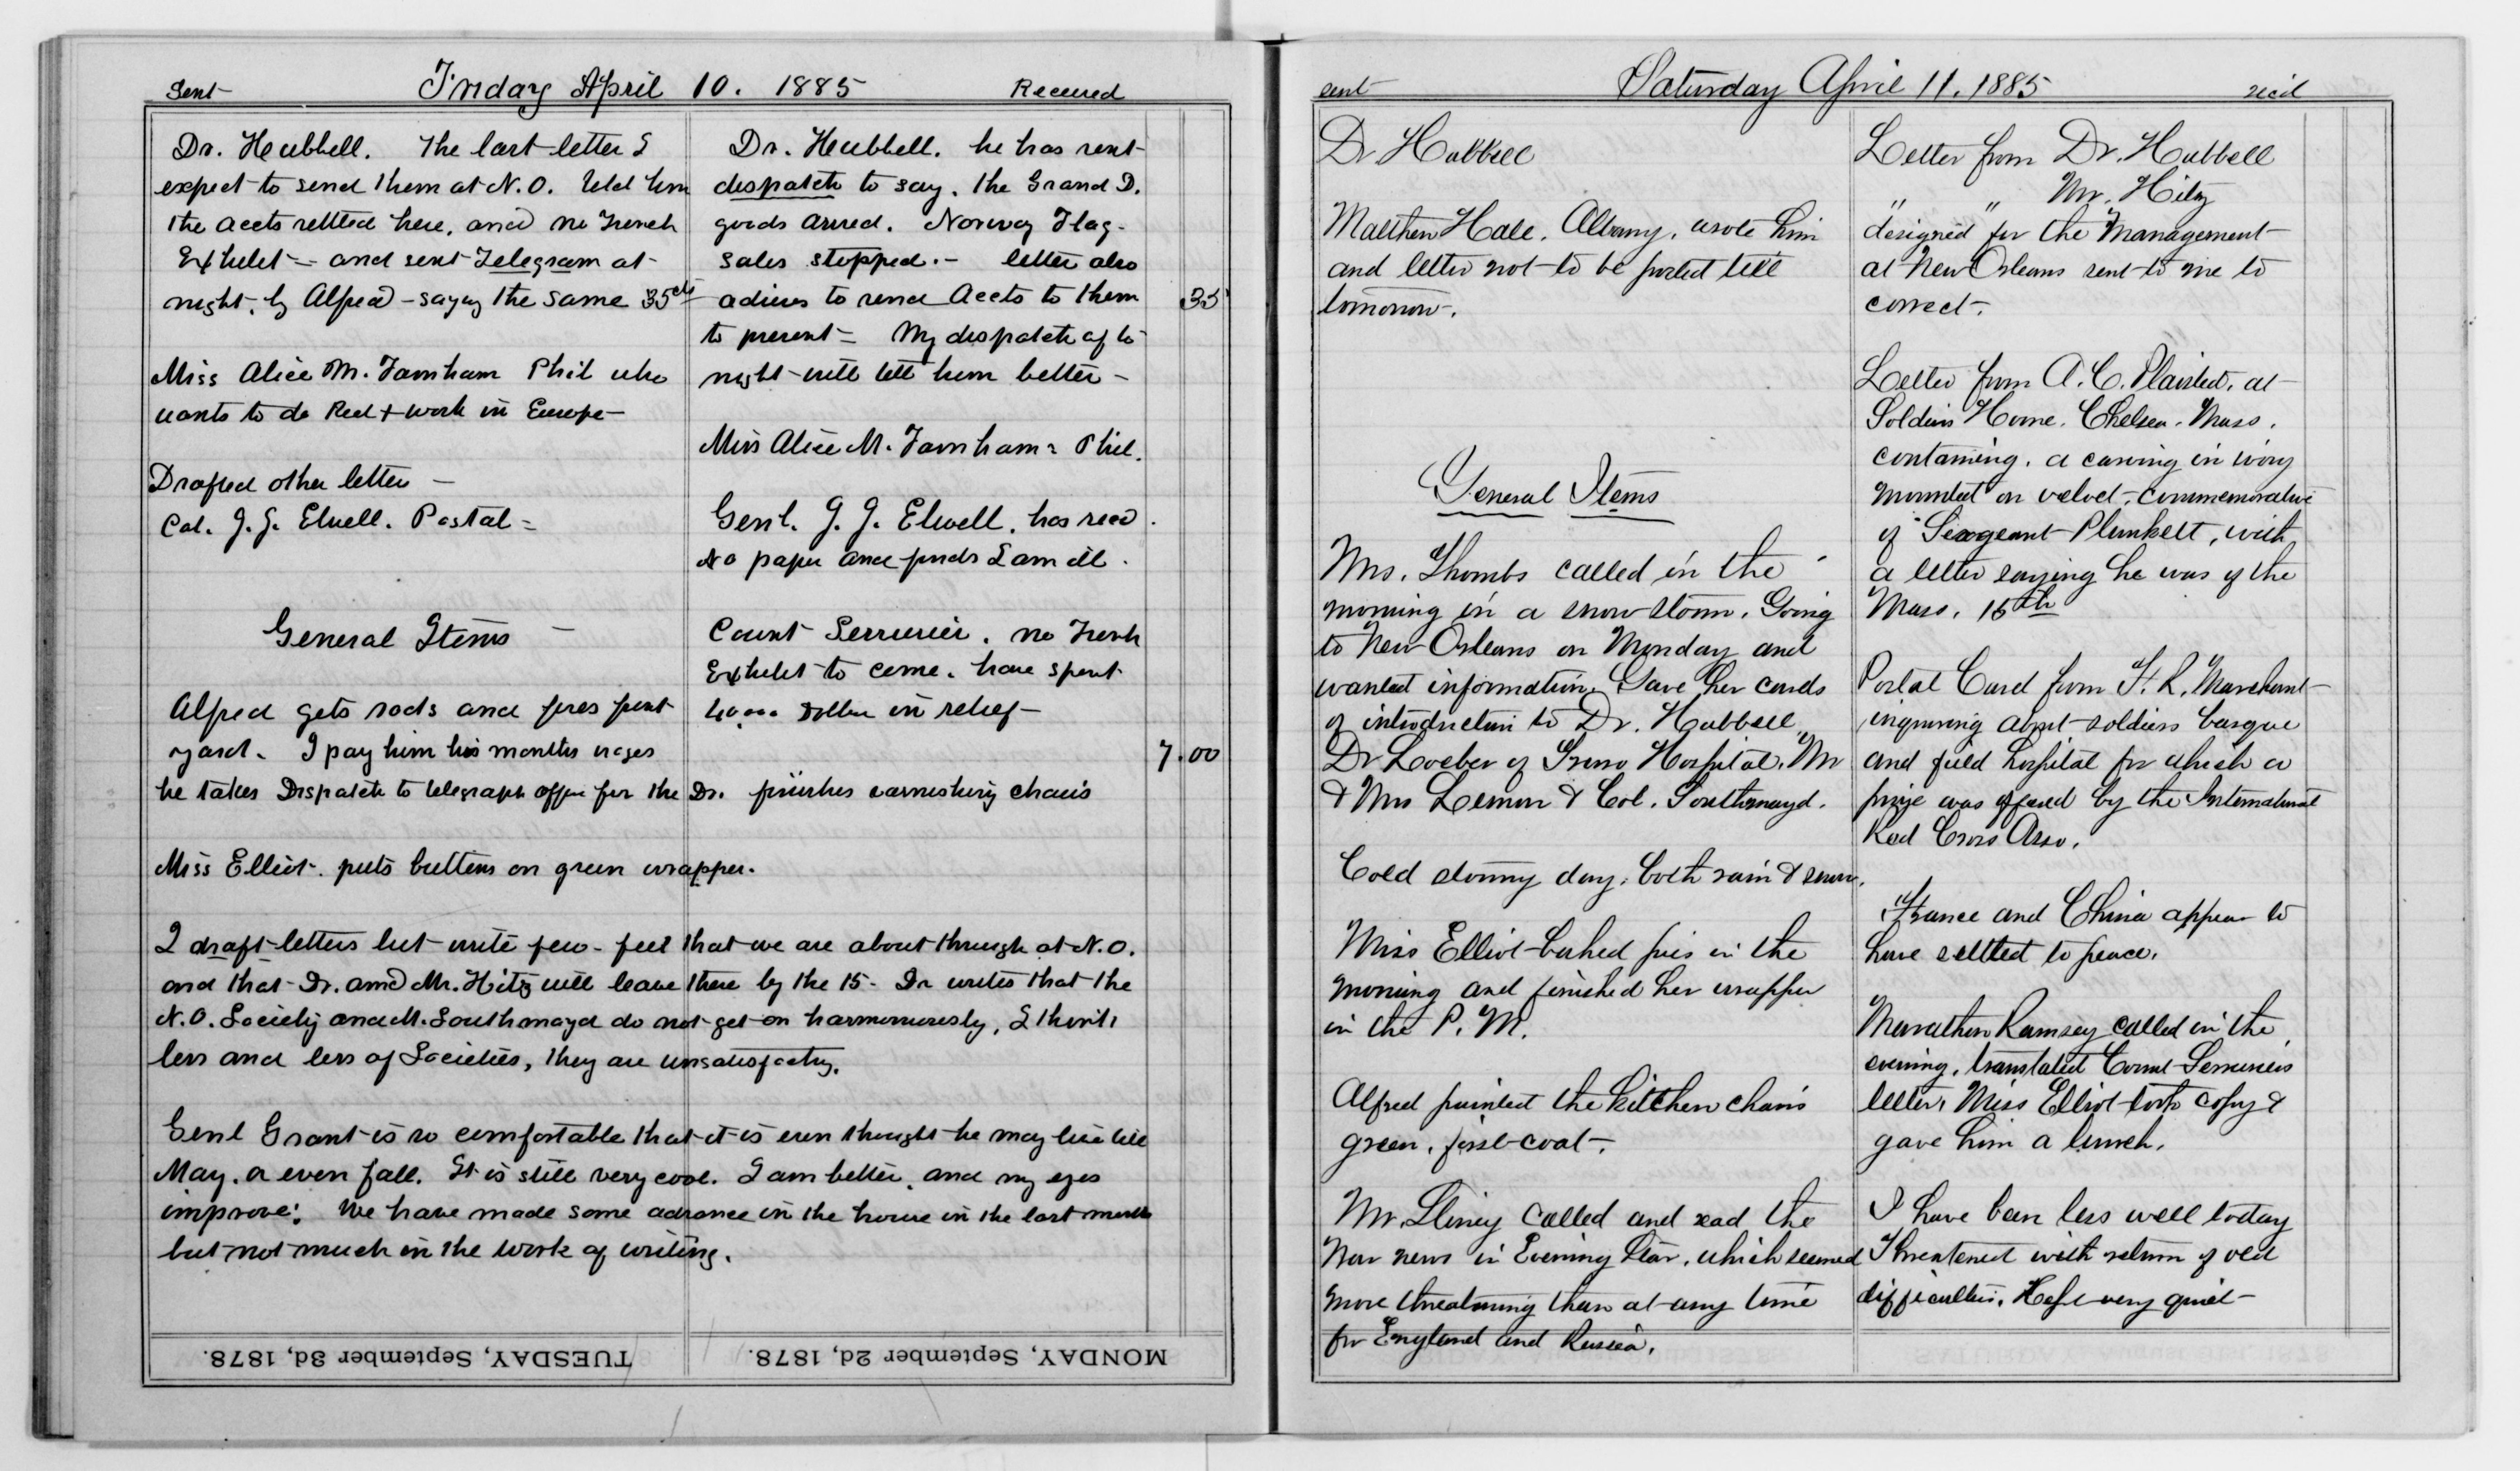 Sent Friday April 10. 1885 Received
Dr. Hubbell. The last letter I
expect to send them at N.O. Told him
the accts settled here, and no French
Exhibit - and sent Telegram at
night. by Alfred - saying the same 35cts
Miss Alice M. Farnham Phil who
wants to do Red + work in Europe -
Drafted other letters -
Col. J. J. Elwell. Postal =
General Items -
Alfred gets sods and fixes front
yard. I pay him his months wages
he takes Dispatch to telegraph office for the Dr. finishes varnishing chairs
Miss Elliot. puts buttons on green wrapper.
I draft letters but write few - feel that we are about through at N.O.
and that Dr. and Mr. Hitz will leave there by the 15 - Dr writes that the
N.O. Society and M. Southmayd do not get on harmoniously, I think
less and less of Societies, they are unsatisfactry.
Genl Grant is so comfortable that it is even thought he may live till
May. or even fall. It is still very cool. I am better, and my eyes
improve: We have made some advance in the house in the last month
but not much in the work of writing.
Dr. Hubbell. he has sent
despatch to say. the Grand D.
goods arived. Norway Flag -
Sales stopped. - letter also
advises to send Accts to them 35
to present - My dispatch of to
night will tell him better -
Miss Alice M. Farnham = Phil.
Genl. J. J. Elwell. has recd.
No paper and finds I am ill.
Count Serrurier. no French
Exhibit to come. have spent
40000 Dollars in relief -
7.00
TUESDAY, September 3d, 1878.
MONDAY, September 2d, 1878.
sent Saturday April 11. 1885 rec'd
Dr Hubbell
Matthew Hale. Albany. wrote him
and letter not to be posted till
tomorrow.
General Items
Mrs. Thombs called in the
morning in a snow storm. Going
to New Orleans on Monday and
wanted information. Gave her cards
of introduction to Dr. Hubbell,
Dr Loeber of Touro Hospital. Mr
& Mrs Lemon & Col. Southmayd.
Cold stormy day. both rain & snow.
Miss Elliot baked pies in the
morning and finished her wrapper
in the P.M.
Alfred painted the kitchen chairs
green. first coat.
Mr. called and read the
War news in Evening Star. which seemed
more threatening than at any time
for England and Russia.
Letter from Dr. Hubbell
" " Mr. Hitz
designed for the Management
at New Orleans sent to me to
correct.
Letter from A. C. Plaisted. at
Soldiers Home. Chelsea. Mass.
containing. a carving in ivory
mounted on velvet, commemorative
of Sergeant Plunkett, with
a letter saying he was of the
Mass. 15th
Postal Card from F. R. Marchant
inquiring about soldiers
and field hospital for which a
prize was offered by the International
Red Cross Asso.
France and China appear to
have settled to peace.
Marathon Ramsey called in the
evening, translated Count Serruriers
letter. Miss Elliot took copy &
gave him a lunch.
I have been less well today
Threatened with return of old
difficulties. Kept very quiet -